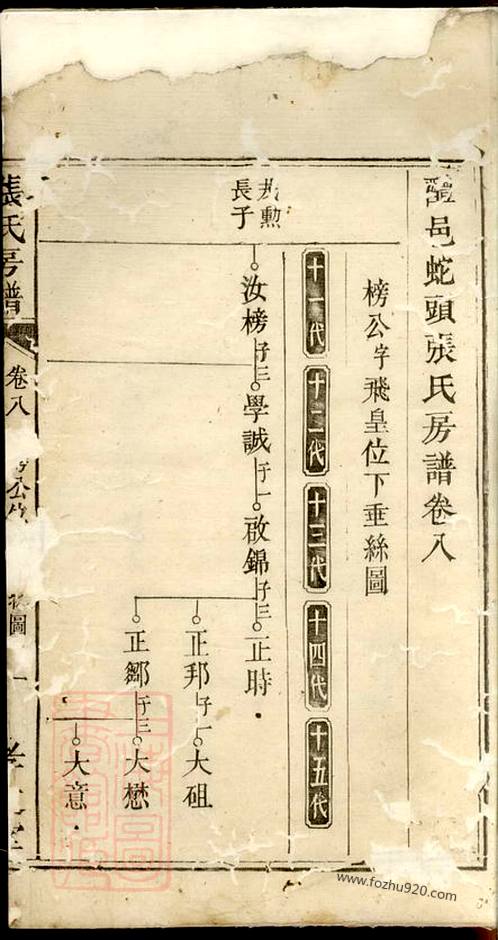 醴邑蛇頭張氏房譜卷八
榜公字飛皇位下垂絲圖
十一代 十二代 十三代 十四代 十五代
勲
長子
汝榜 子三 學誠 子一 啟錦 子三 正時
正邦 子一 大砠
正鄒 子三 大懋
大意
張氏房譜 卷八
公
圖
一
www.fozhu920.com